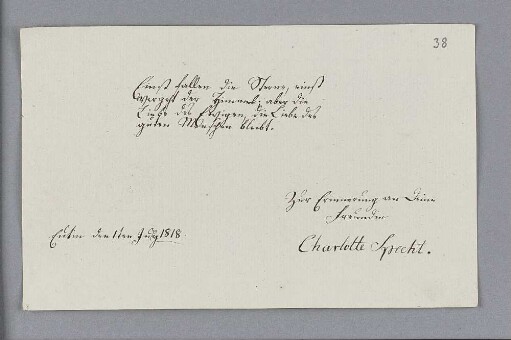 38
Einst fallen die Sterne, einst
vergeht der Himmel; aber die
Liebe des Ewigen, die Liebe des
guten Menschen bleibt.
Zur Erinnerung an Deine
Freundin
Charlotte Specht.
Eutin den 1ten July 1818